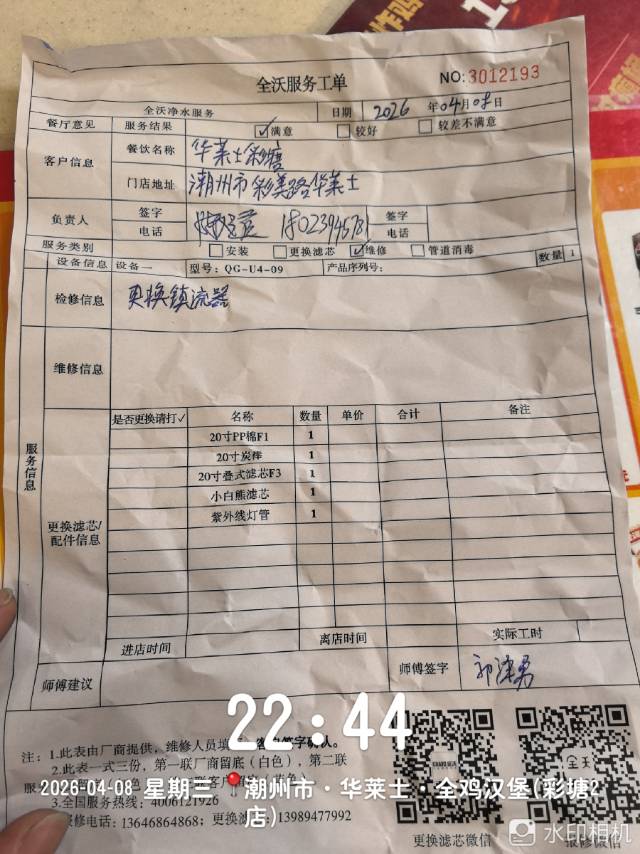 全沃服务工单
NO:3012193
全沃净水服务 日期 2026 年 04 月 08 日
餐厅意见 服务结果 ☑满意 □较好 □较差不满意
客户信息 餐饮名称 华莱士彩塘
门店地址 潮州市彩美路华莱士
负责人 签字 签字
电话 18023945781 电话
服务类别 □安装 □更换滤芯 ☑维修 □管道消毒
设备信息 设备一 型号：QG-U4-09 产品序列号： 数量 1
服务信息
检修信息 更换镇流器
维修信息
更换滤芯/配件信息
是否更换请打√ 名称 数量 单价 合计 备注
20寸PP棉F1 1
20寸炭棒 1
20寸叠式滤芯F3 1
小白熊滤芯 1
紫外线灯管 1
进店时间 离店时间 实际工时
师傅建议 师傅签字
22:44
注：1.此表由厂商提供，维修人员填 签字确认。
2.此表一式三份，第一联厂商留底（白色），第二联
2026-04-08 星期三 潮州市·华莱士·全鸡汉堡(彩塘2店)
3.全国服务热线：4006121926
修电话：13646864868；投诉电话：13989477992
全天
更换滤芯微信
报修微信
水印相机